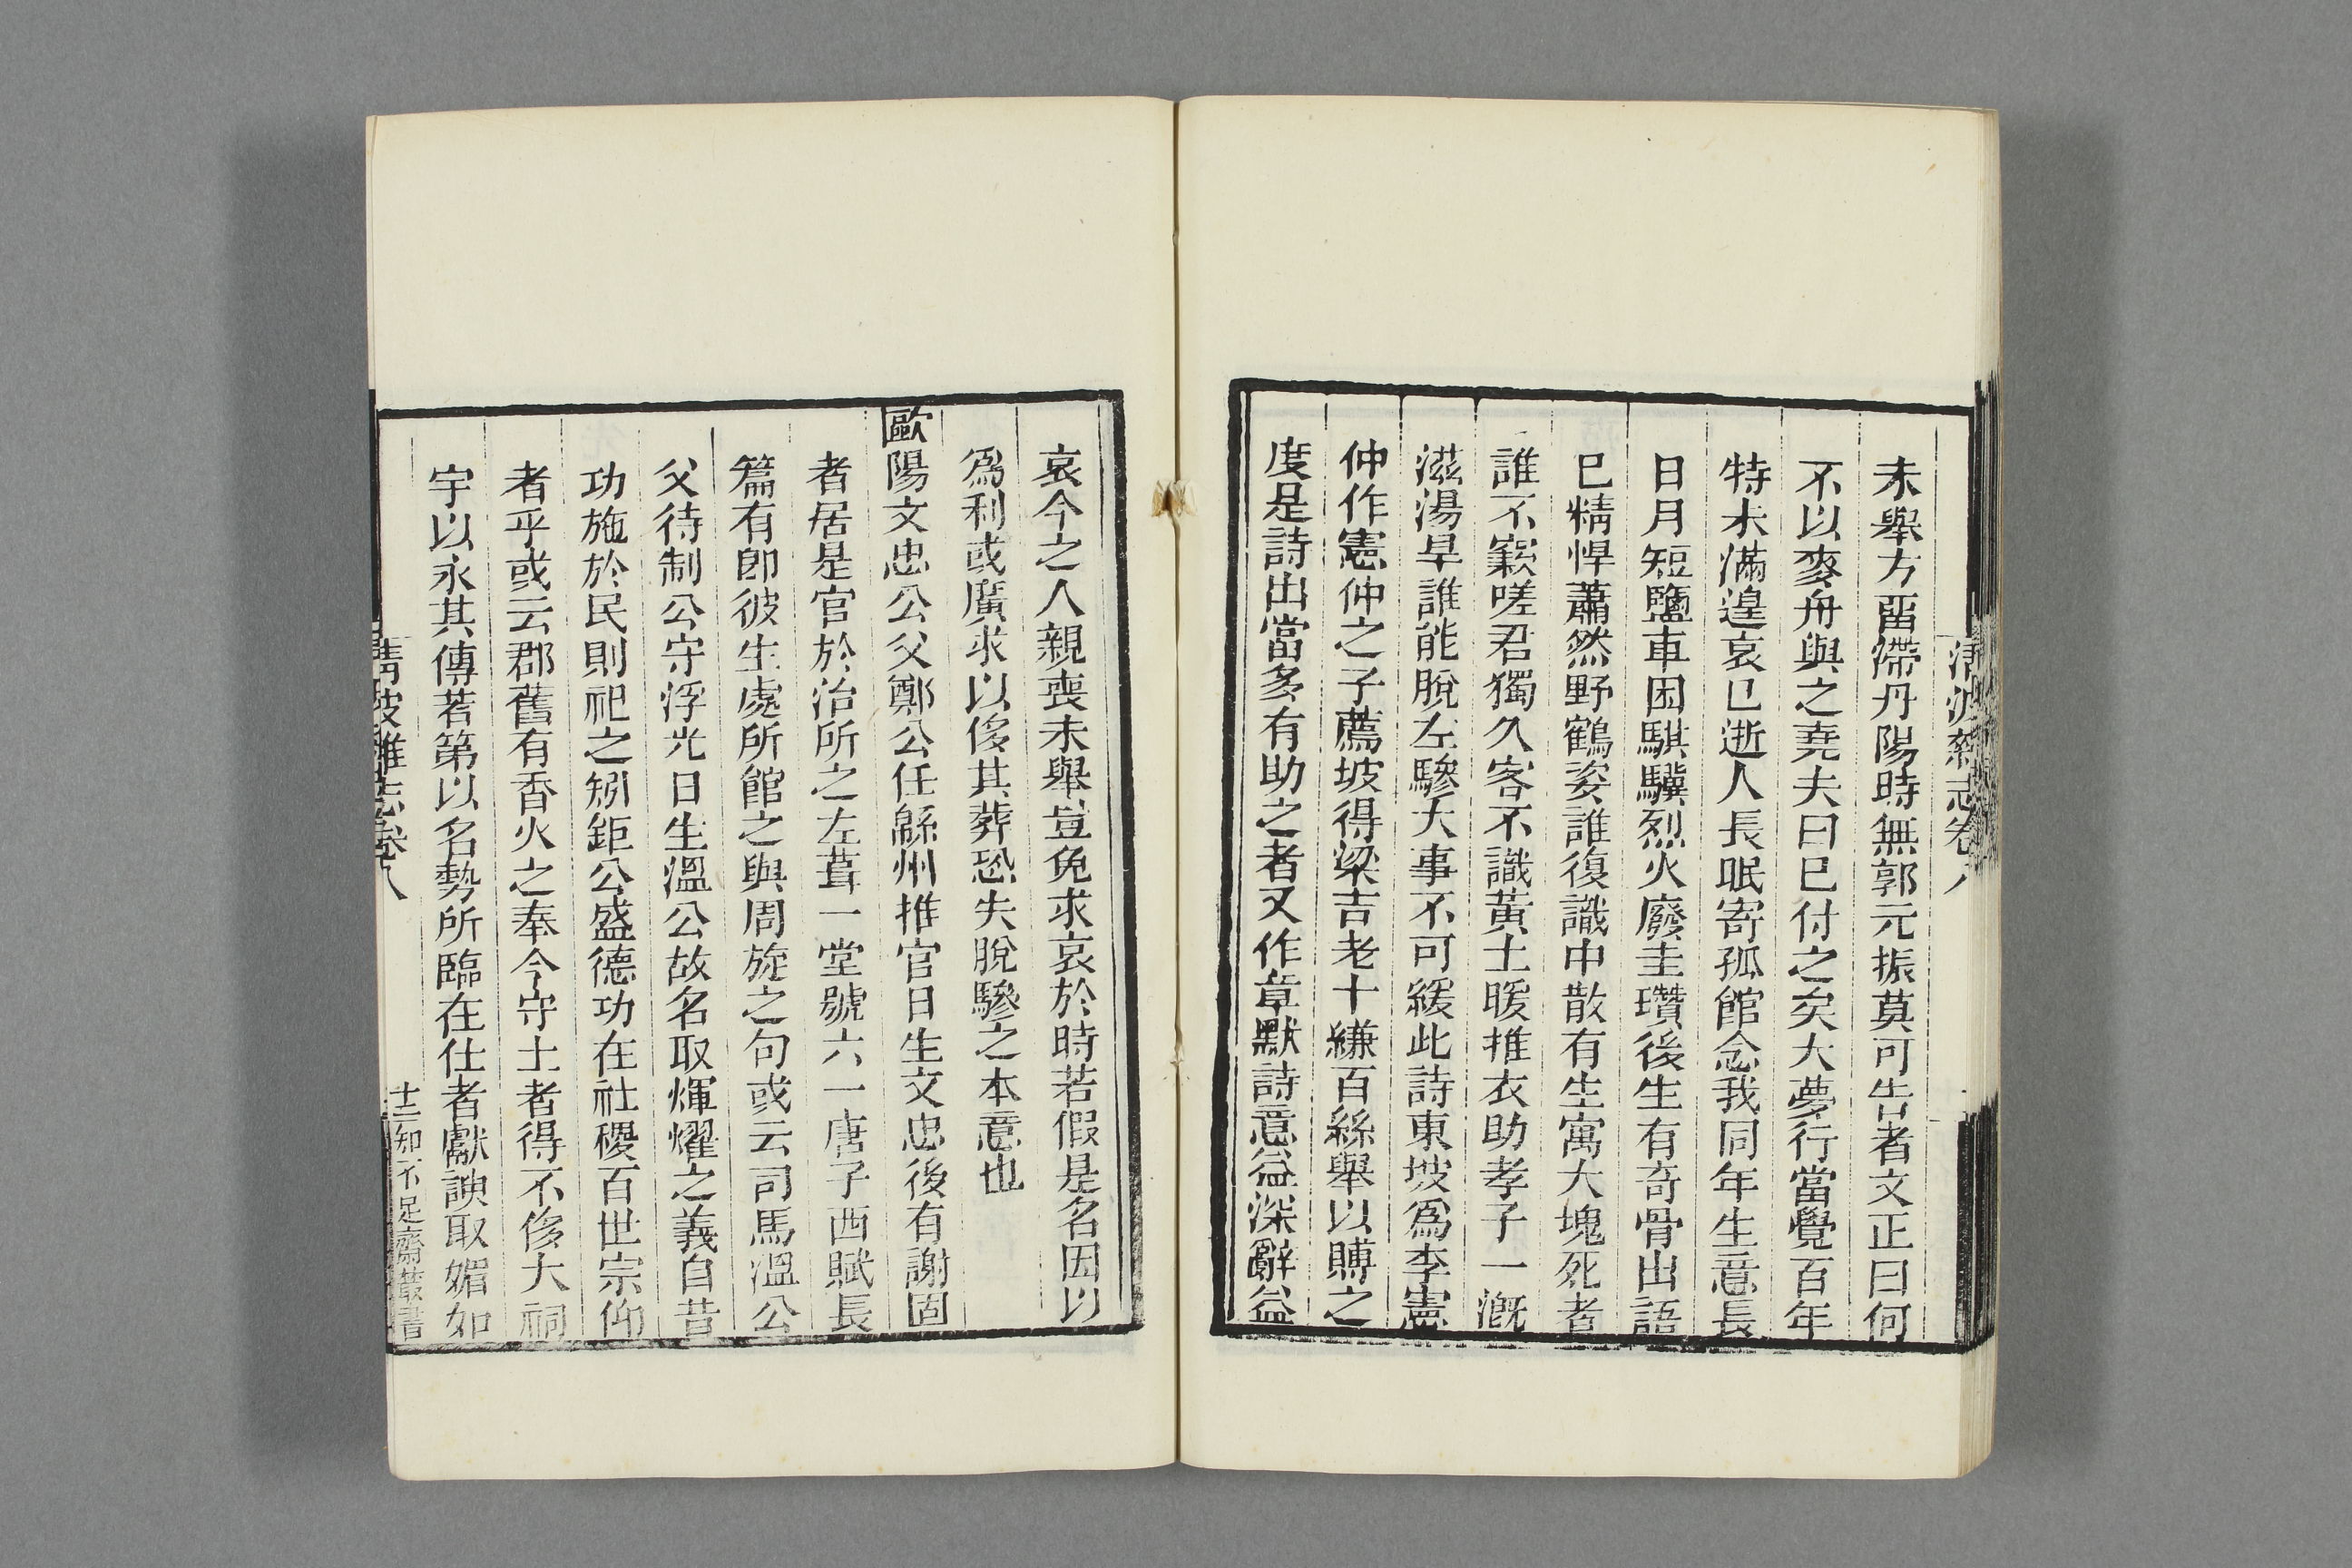 清波雜志卷八
未舉方畱滯丹陽時無郭元振莫可告者文正曰何
不以麥舟與之堯夫曰巳付之矣大夢行當覺百年
特未滿遑哀巳逝人長眠寄孤館念我同年生意長
日月短鹽車困騏驥烈火廢圭瓚後生有奇骨出語
巳精悍蕭然野鶴姿誰復識中散有生寓大塊死者
誰不窾嗟君獨久客不識黃土暖推衣助孝子一溉
滋湯旱誰能脫左驂大事不可緩此詩東坡爲李憲
仲作憲仲之子薦坡得梁吉老十縑百絲舉以賻之
度是詩出當多有助之者又作章默詩意益深辭益
哀今之人親喪未舉豈免求哀於時若假是名因以
爲利或廣求以侈其葬恐失脫驂之本意也
歐陽文忠公父鄭公任緜州推官日生文忠後有謝固
者居是官於治所之左葺一堂號六一唐子西賦長
篇有卽彼生處所館之與周旋之句或云司馬溫公
父待制公守浮光日生溫公故名取煇燿之義自昔
功施於民則祀之矧鉅公盛德功在社稷百世宗仰
者乎或云郡舊有香火之奉今守土者得不侈大祠
宇以永其傳若第以名勢所臨在仕者獻諛取媚如
清波雜志卷八
十二知不足齋叢書